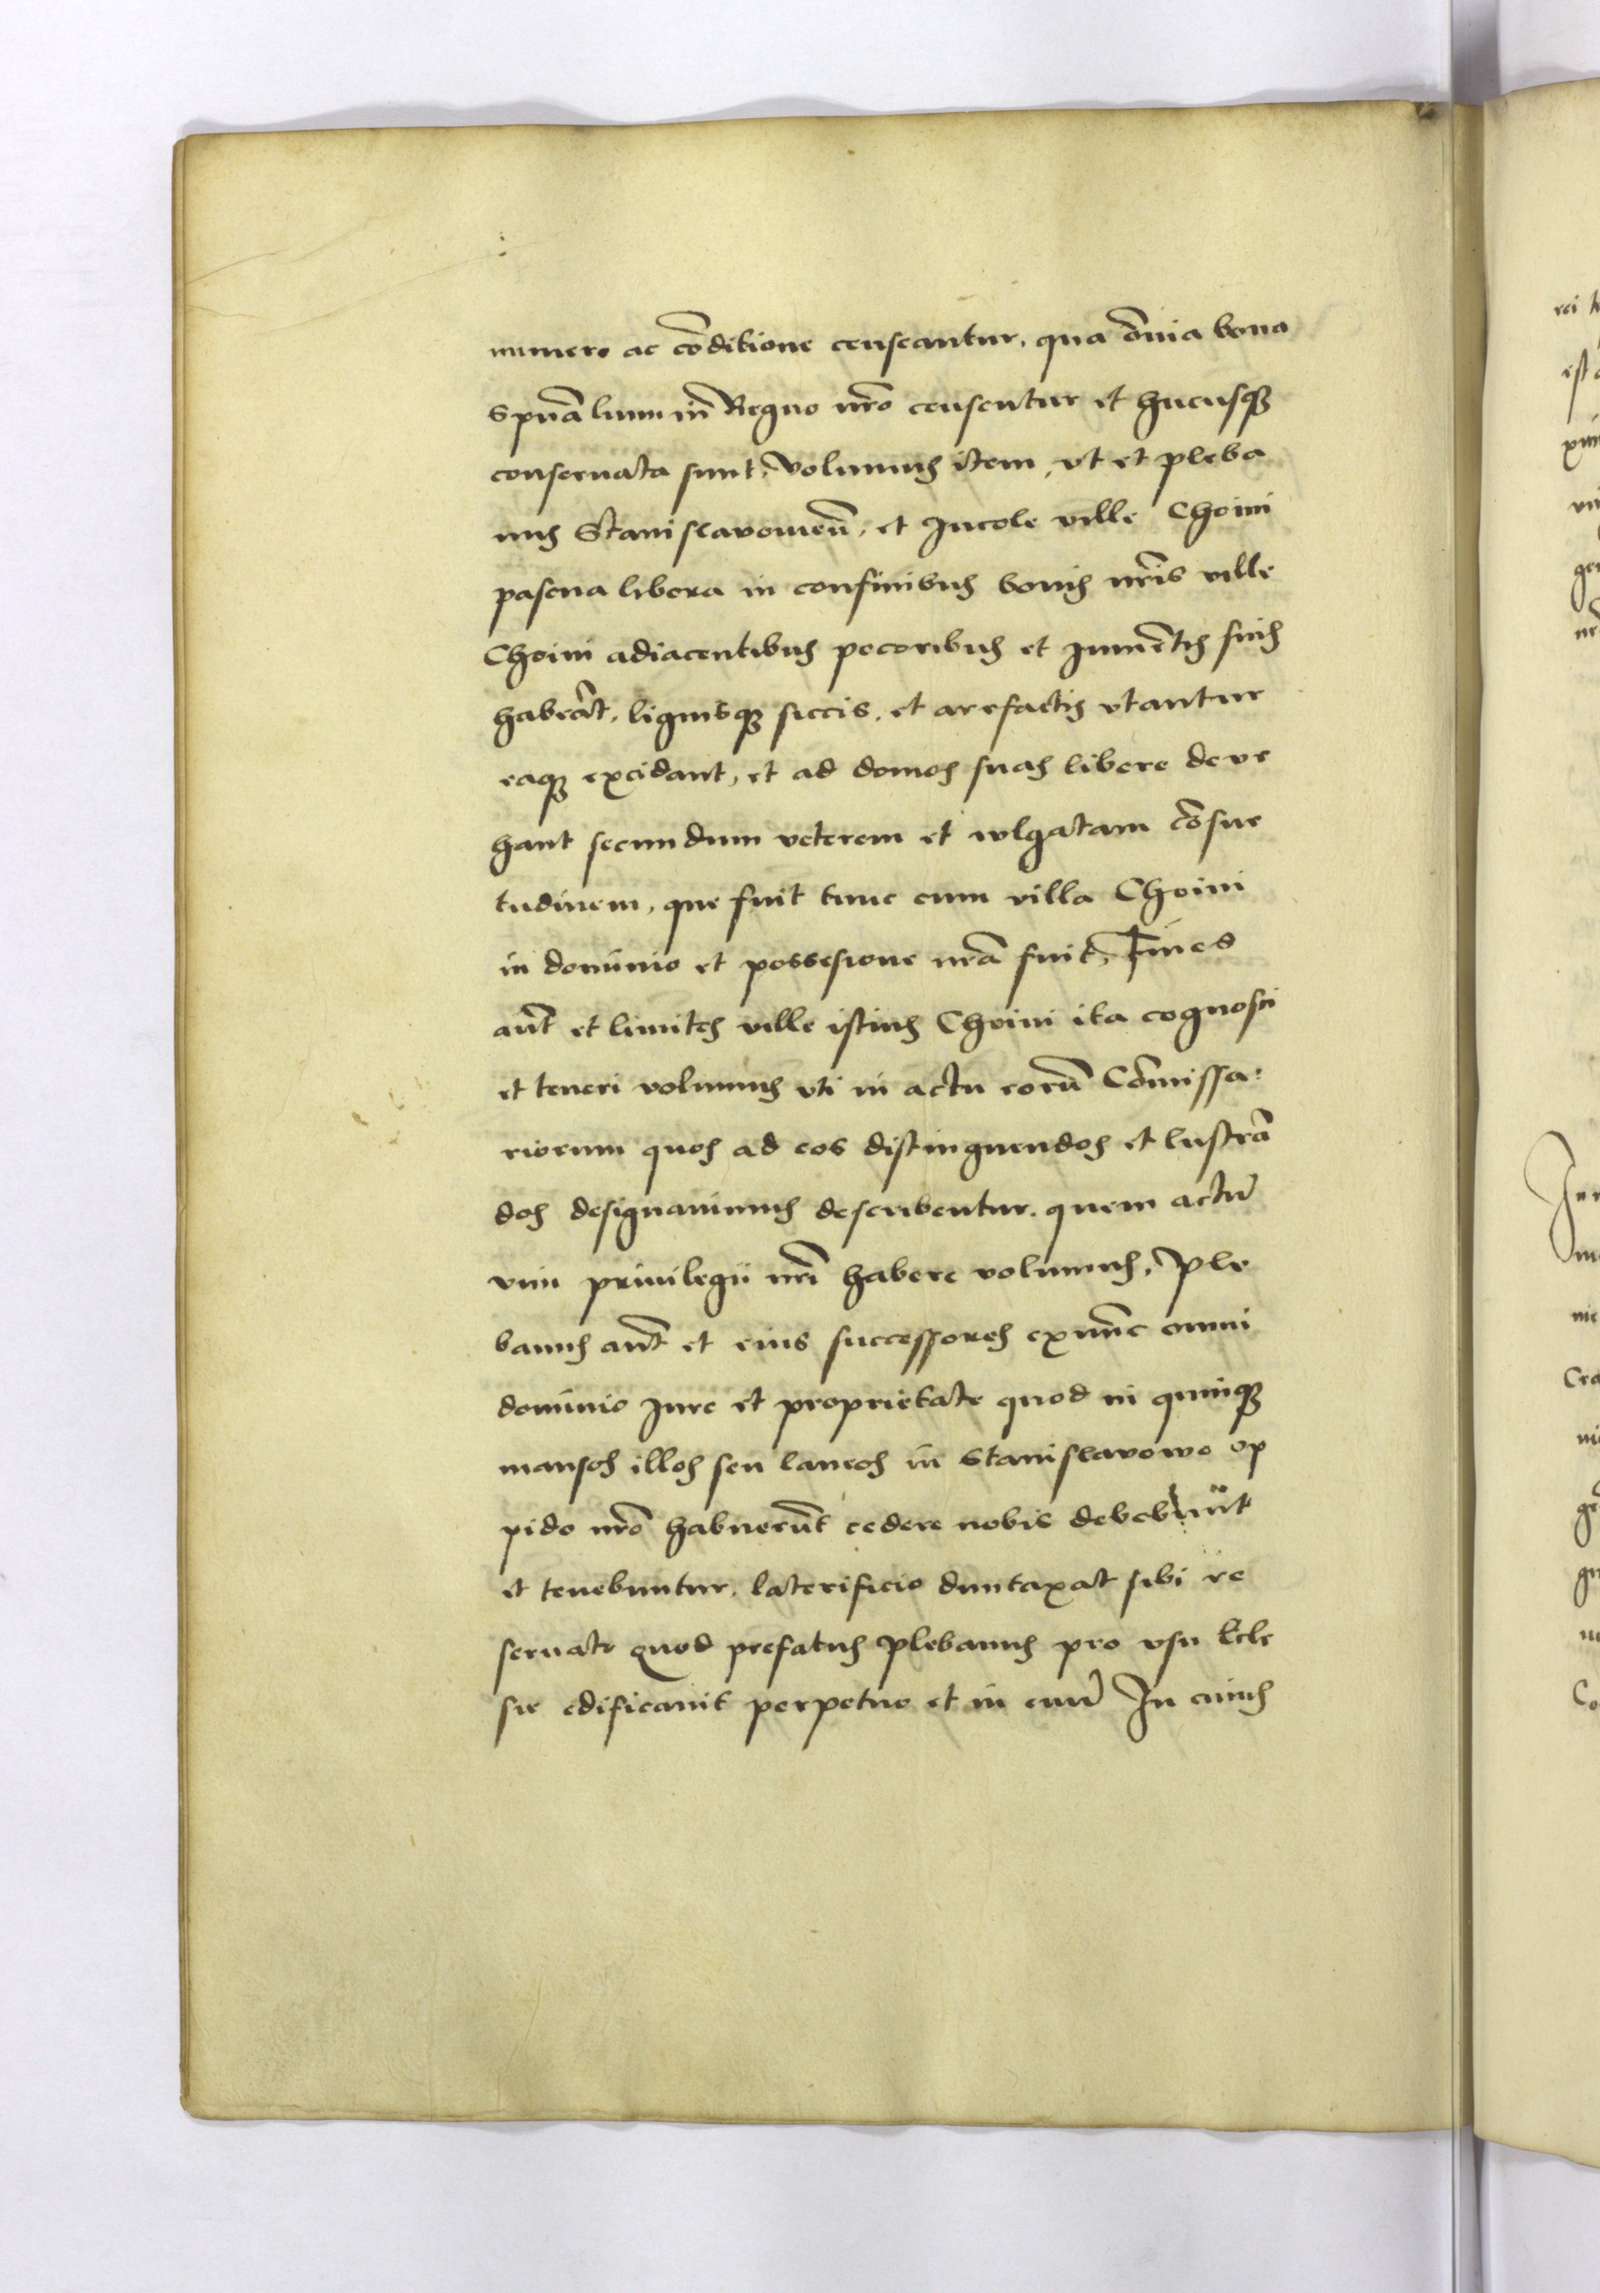 numero ac cōditione censeantur, qua ōmia bona
Spūalium in Regno nr̄o censentur et hucusq3
conseruata sunt, Volumus item, vt et pleba
nus Stanislavowieñ, et Incole ville Choini
pascua libera in confinibus bonis nr̄is ville
Choini adiacentibus pecoribus et Iumētis suis
habeāt, lignisq3 siccis, et arefactis vtantur
eaq3 excidant, et ad domos suas libere deve
hant secundum veterem et vulgatam cōsue
tudinem, que fuit tunc cum villa Choini
in dominio et possesione nr̄a fuit, Fines
aūt et limites ville istius Choini ita cognosci
et teneri volumus vti in actu eorū Cōmissa:
riorum quos ad eos distinguendos et lustrā
dos designauimus describentur. quem actū
vim priuilegii nr̄i habere volumus, Ple
banus aūt et eius successores exnūc omni
dominio Iure et proprietate quod in quinq3
mansos illos seu laneos in Stanislavowo op
pido nr̄o habuerūt cedere nobis debebūt
et tenebuntur. laterificio duntaxat sibi re
seruato quod prefatus Plebanus pro vsu Ecle
sie edificauit perpetuo et in euū In cuius